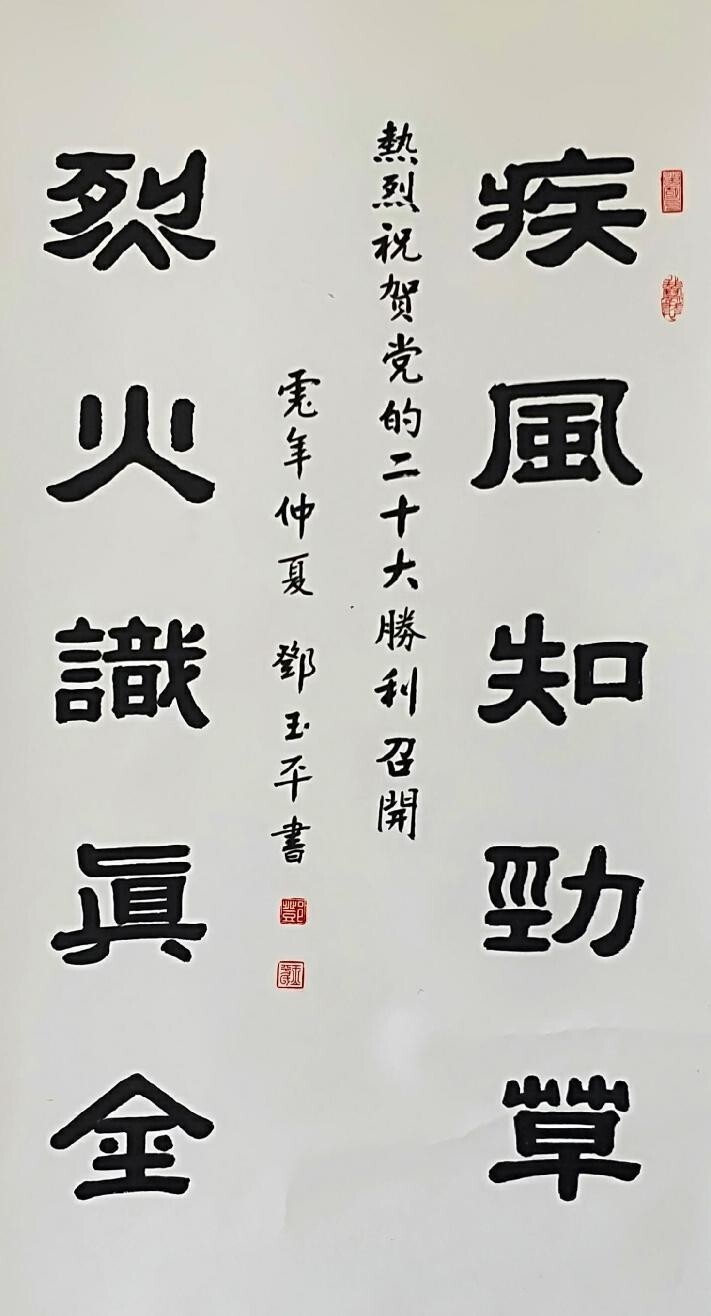 疾風知勁草
熱烈祝贺党的二十大勝利召開
烈火識眞金
虎年仲夏 鄧玉平書